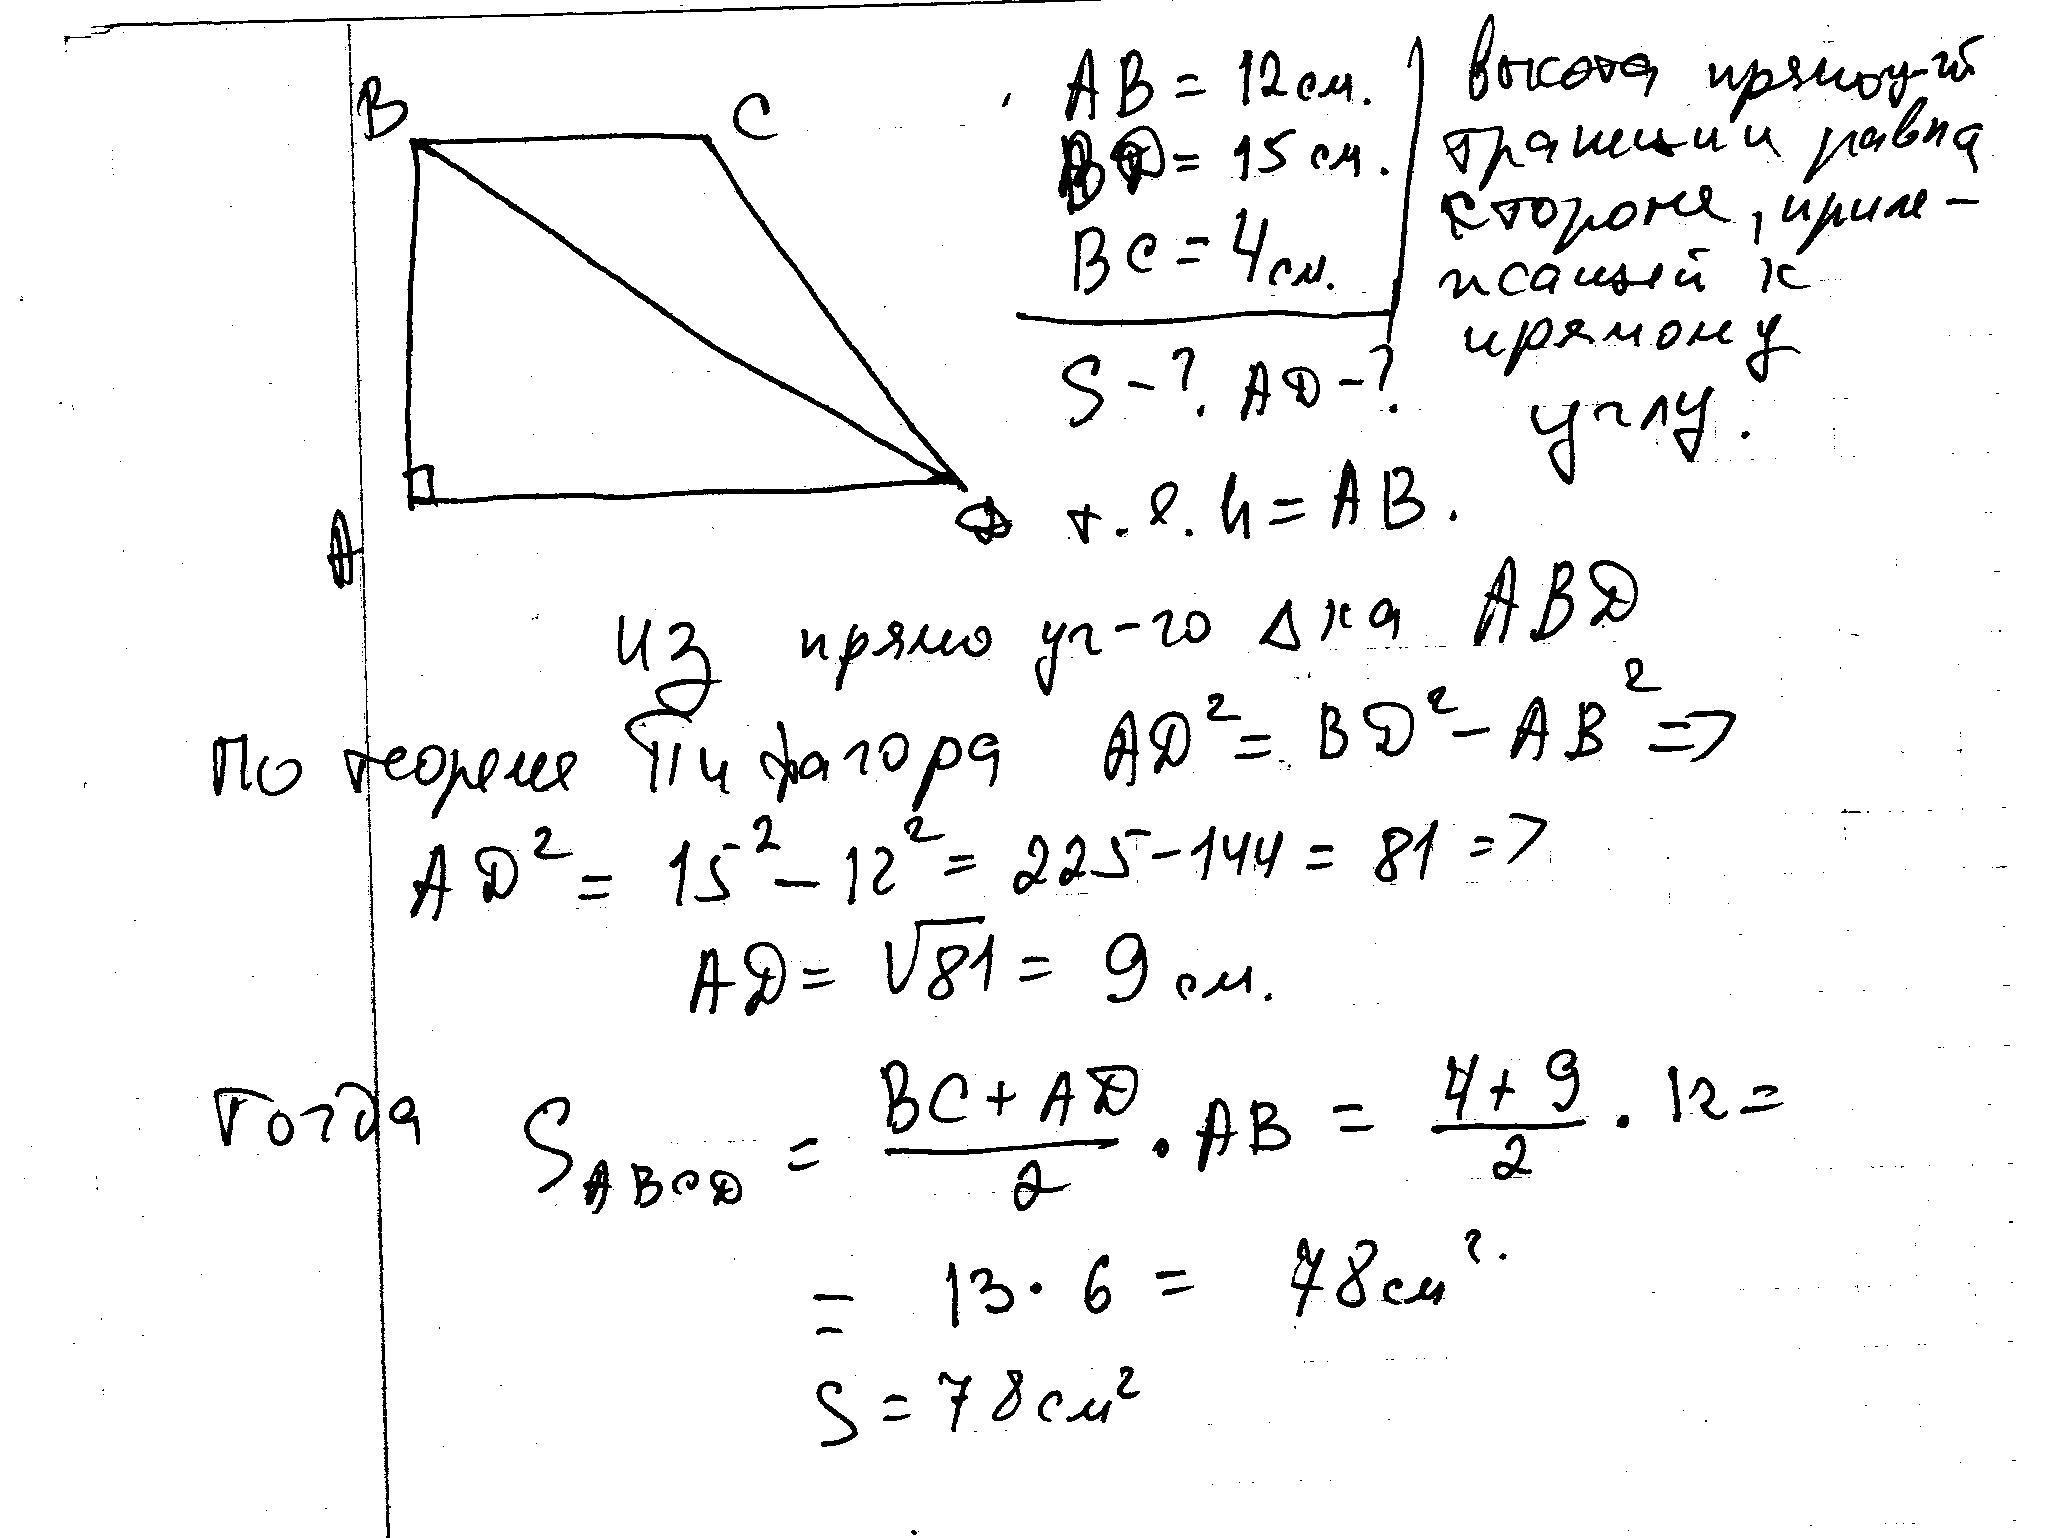 B
C
A
D
AB = 12 см.
BD = 15 см.
BC = 4 см.
S - ? AD - ?
высота прямоу-й
трапеции равна
стороне, приле-
жащей к
прямому
углу.
т. е. h = AB.
из прямоуг-го Δка ABD
По теореме Пифагора AD² = BD² - AB² =>
AD² = 15² - 12² = 225 - 144 = 81 =>
AD = √81 = 9 см.
Тогда S ABCD = (BC + AD)/2 · AB = (4 + 9)/2 · 12 =
= 13 · 6 = 78 см².
S = 78 см²